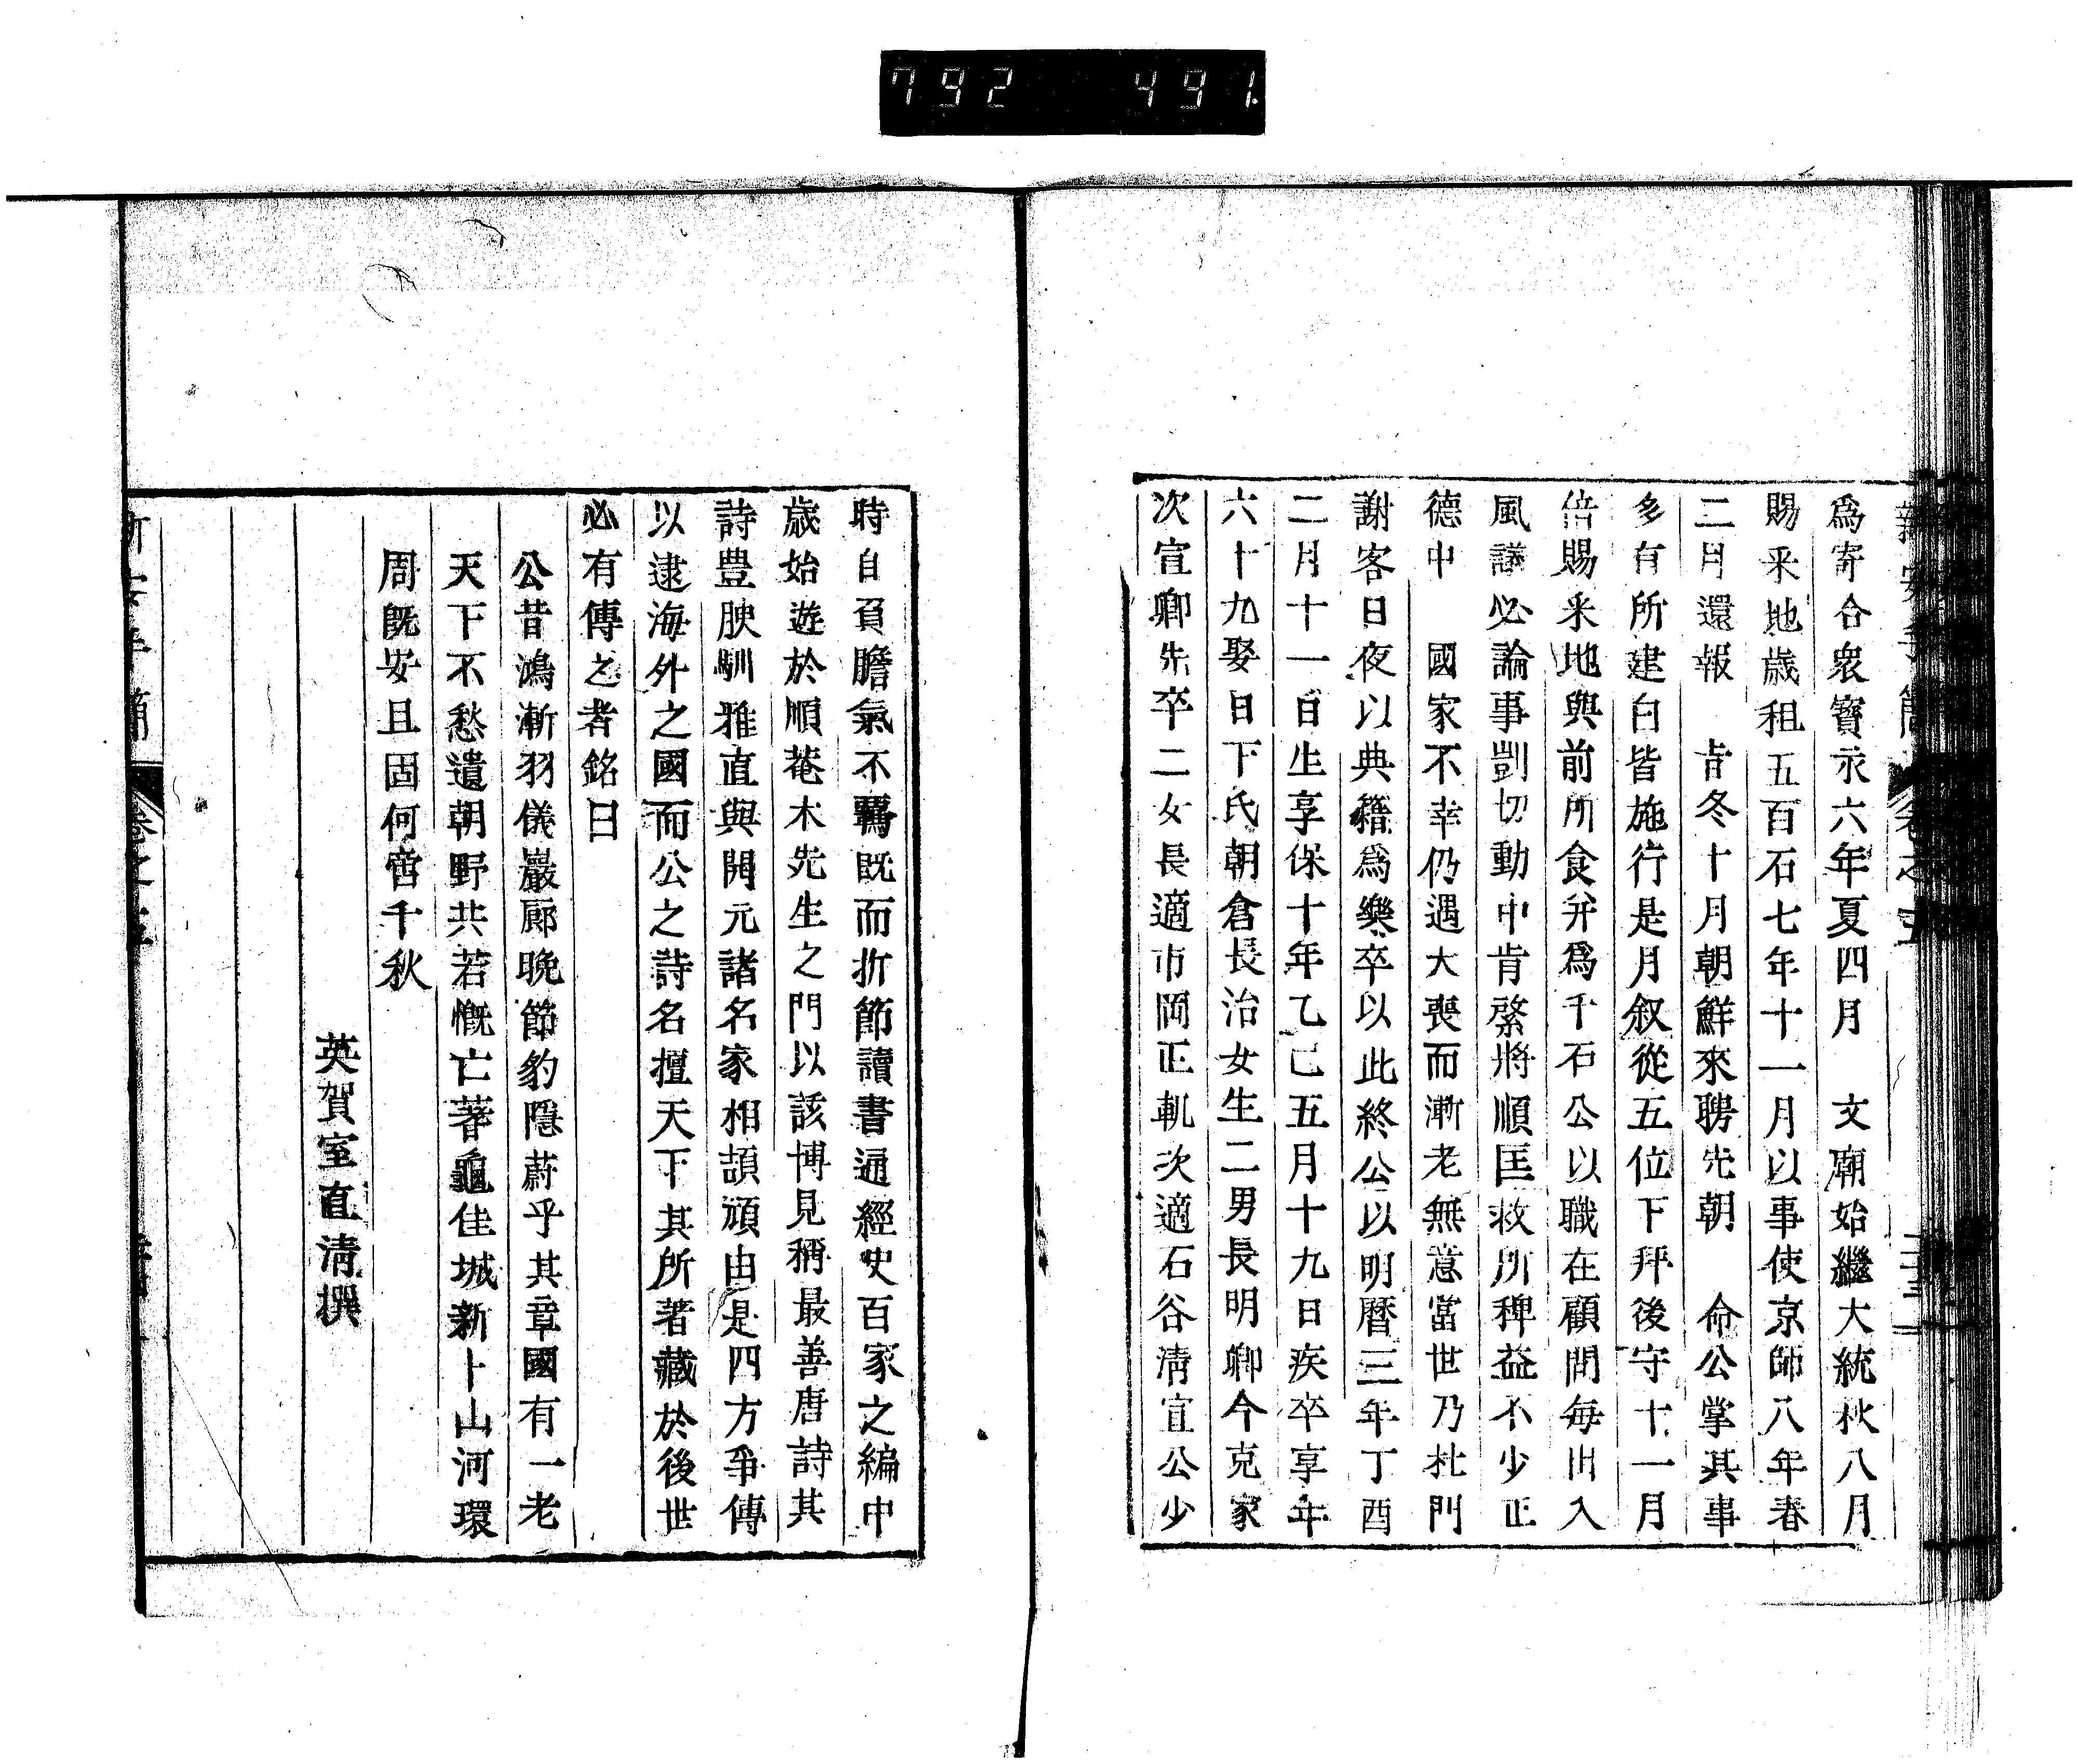 792 491
為寄合衆寳永六年夏四月　文廟始繼大統秋八月
賜釆地歳租五百石七年十一月以事使京師八年春
二月還報　旹冬十月朝鮮來聘先朝　命公掌其事
多有所建白皆施行是月叙從五位下拜後守十一月
倍賜釆地與前所食并為千石公以職在顧問毎出入
風議必論事剴切動中肯綮將順匡救所稗益不少正
德中　國家不幸仍遇大喪而漸老無意當世乃杜門
謝客日夜以典籍為樂卒以此終公以明曆三年丁酉
二月十一日生享保十年乙巳五月十九日疾卒享年
六十九娶日下氏朝倉長治女生二男長明卿今克家
次宜卿先卒二女長適市岡正軌次適石谷清宜公少
時自負膽氣不羈既而折節讀書通經史百家之編中
歳始遊於順菴木先生之門以該博見稱最善唐詩其
詩豊腴馴雅直與開元諸名家相頡頏由是四方爭傳
以逮海外之國而公之詩名擅天下其所著藏於後世
必有傳之者銘曰
公昔鴻漸羽儀巖廊晩節豹隱蔚乎其章國有一老
天下不愁遺朝野共若慨亡蓍龜佳城新卜山河環
周既安且固何啻千秋
英賀室直清撰